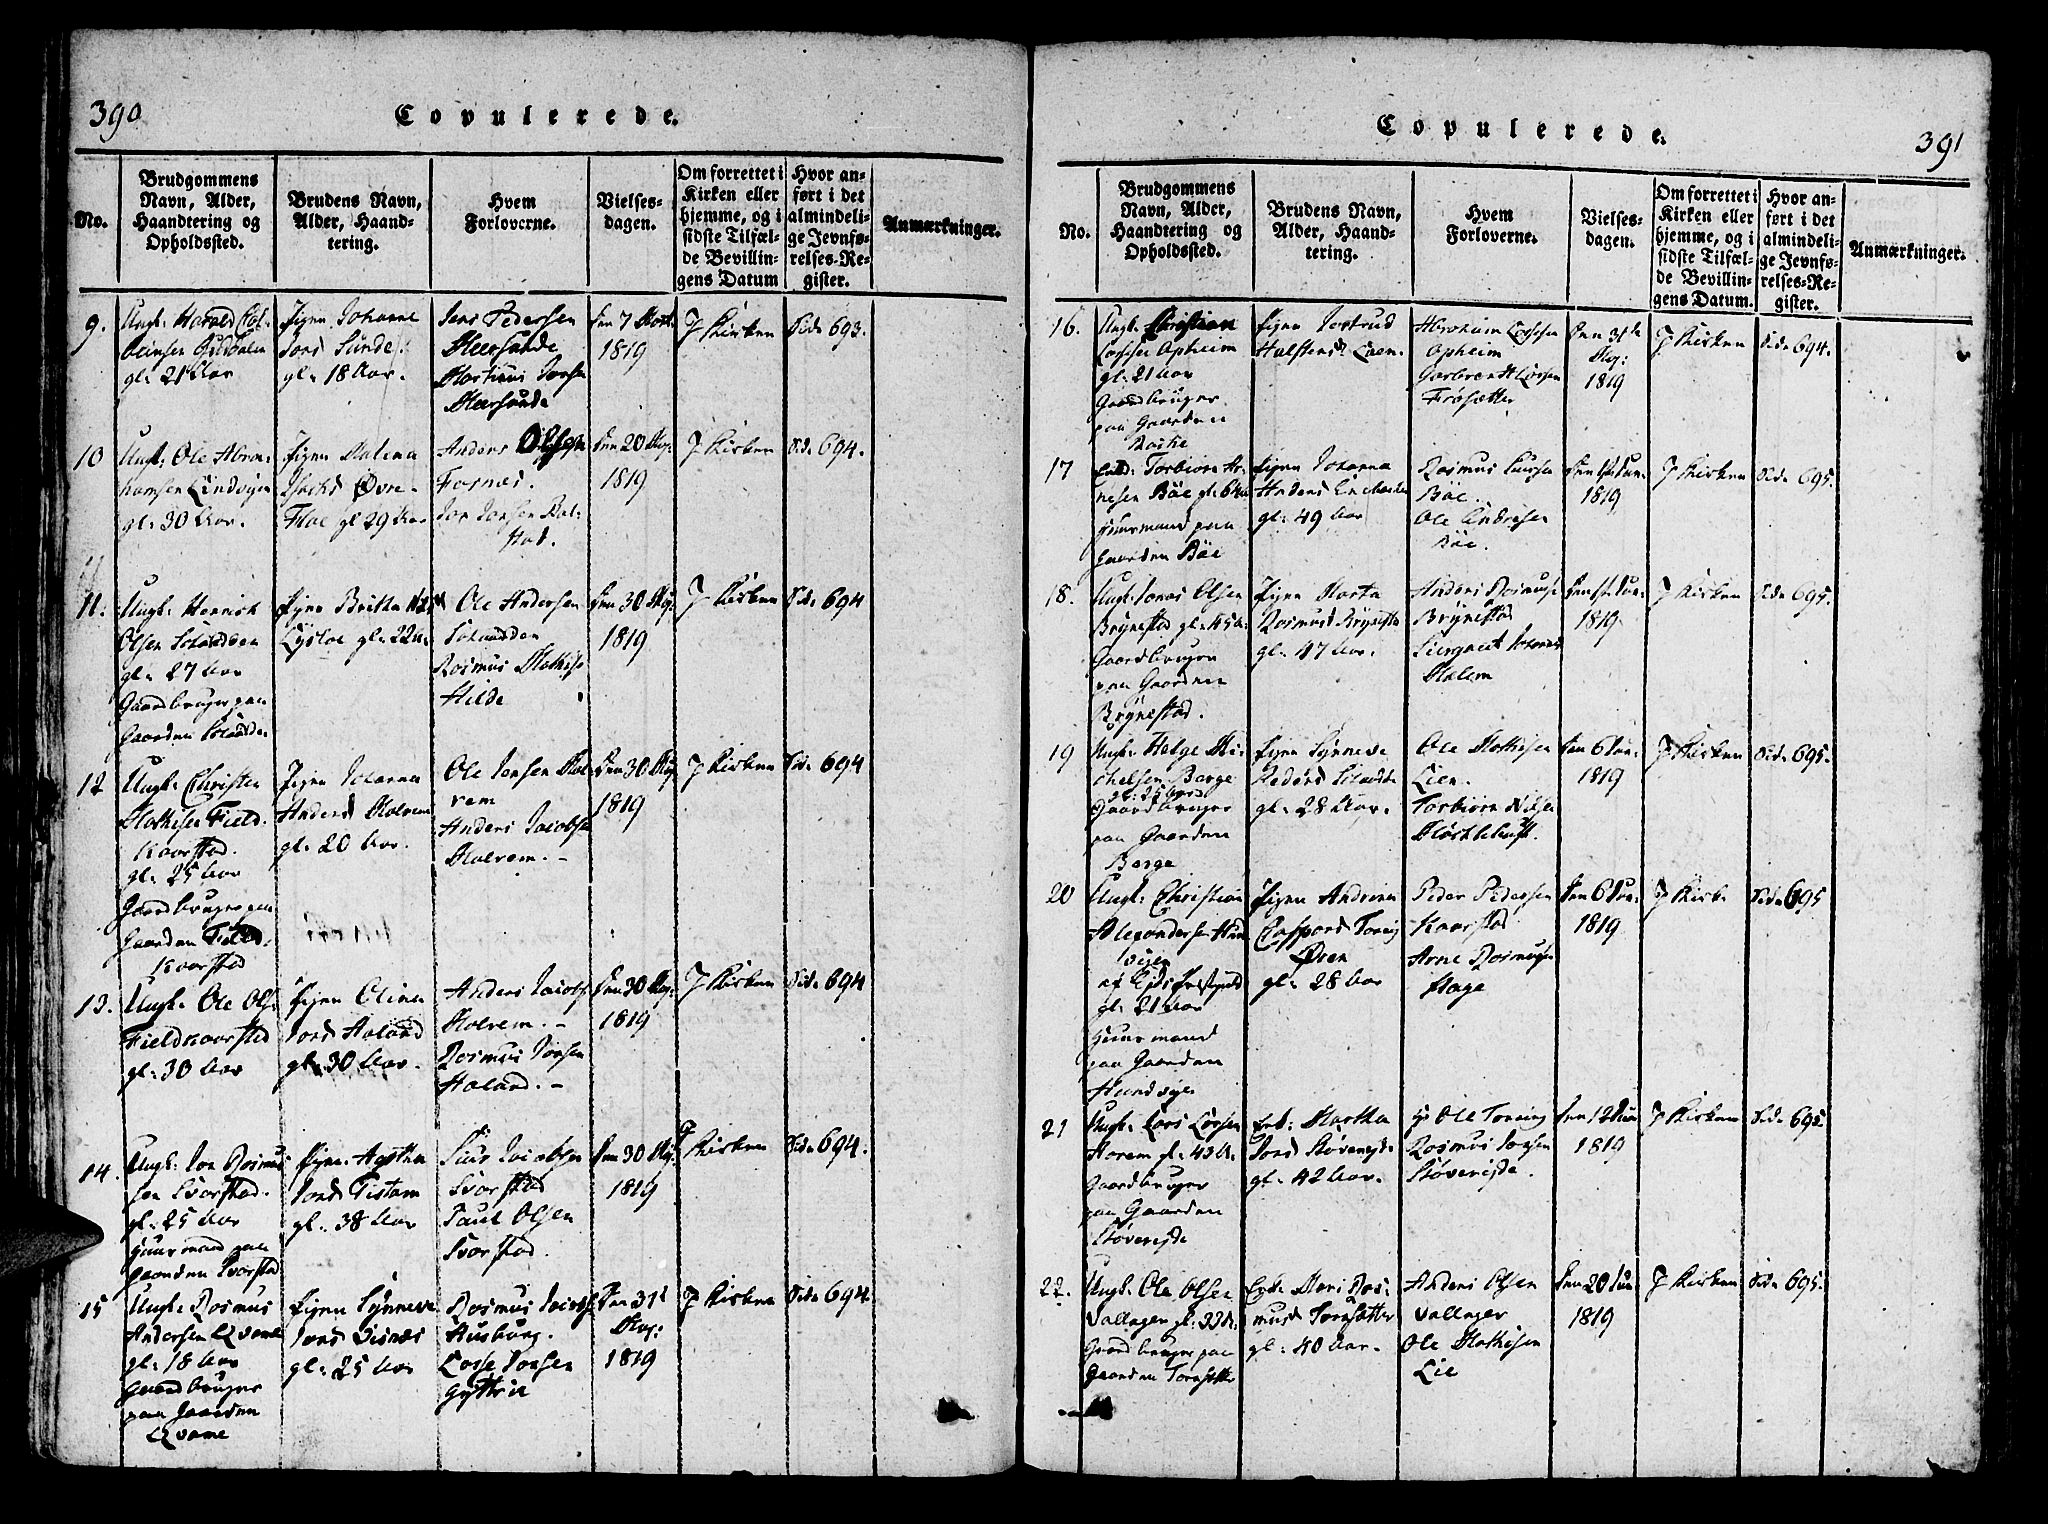 390
Copulerede.
No.
Brudgommens Navn, Alder, Haandtering og Opholdssted.
Brudens Navn, Alder, Haandtering.
Hvem Forloverne.
Vielsesdagen.
Om forrettet i Kirken eller hjemme, og i sidste Tilfælde Bevillingens Datum
Hvor anført i det almindelige Jevnførelses-Register.
Anmærkninger.
9.
Ungk: Harald
gl: 21 Aar
Pigen Johanne
Jons Sunde
gl: 18 Aar.
Jens Pedersen
Meersunde
Jonsen
Meersunde
den 7
1819
I Kirken
Side 693.
10
Ungk: Ole Abra-
hamsen Lindvigen
gl: 30 Aar.
Pigen Malena
Øvre-
Floe gl 29 Aar
Anders Olsen
Fornes.
Jon Jonsen
den 20 May
1819
I Kirken
Side 694.
11.
Ungk: Henrich
Olsen
gl: 27 Aar
Gaardbruger paa
Gaarden
Pigen Britha
gl: 22
Ole Andersen
Rasmus Mathis
Hilde
den 30 May
1819
I Kirken
Side 694
12
Ungk: Christen
Mathisen Field
Kaarstad.
gl: 25 Aar
Gaardbruger paa
Gaarden Field
Kaarstad
Pigen Johanna
Anders Holvem
gl: 20 Aar.
Ole Jensen Hol-
vem
Anders Jacobs
Holvem. -
den 30 May
1819
I Kirken
Side 694
13.
Ungk: Ole Ols
Fieldkaarstad
gl: 30 Aar
Pigen Olina
Jons Haland
gl: 30 Aar.
Anders Jacobs
Holvem. -
Rasmus Jonsen
Haland. -
den 30 May:
1819
I Kirken
Side 694
14.
Ungk: Jon Rasmus
sen Svorstad.
gl: 25 Aar
Huusmand paa
Gaarden Svorstad
Pigen Agatha
Jons Tistam
gl: 38 Aar
Siur Jacobsen
Svorstad
Paul Olsen
Svorstad.
den 30 May:
1819
I Kirken
Side 694.
15
Ungk: Rasmus
Andersen Qvame
gl: 18 Aar
Gaardbruger
paa Gaarden
Qvame
Pigen Synneve
Jons Visnæs
gl: 25 Aar
Rasmus Jacobs
Ausburg.
Lasse Jonsen
den 31t
May:
1819
I Kirken
Side 694.
Copulerede.
391
No.
Brudgommens Navn, Alder, Haandtering og Opholdssted.
Brudens Navn, Alder, Haandtering.
Hvem Forloverne.
Vielsesdagen.
Om forrettet i Kirken eller hjemme, og i sidste Tilfælde Bevillingens Datum.
Hvor anført i det almindelige Jevnførelses-Register.
Anmærkninger.
16.
Ungk: Christian
Lassen Opheim
gl: 21 Aar
Gaardbruger
paa Gaarden
Pigen Jostrud
Halstens
Abraham Lassen
Opheim
Larsen
Frøsætter
den 31te
May:
1819
I Kirken
Side 694.
17
Enk: Torbiørn Ar-
nesen Bøe gl: 64
Huusmand paa
Gaarden Bøe
Pigen Johanna
Anders
gl: 49 Aar
Rasmus Larsen
Bøe.
Ole Andersen
Bøe.
den 1st Jun:
1819
I Kirken
Side 695.
18.
Ungk: Jonas Olsen
Brynestad gl: 45
Gaardbruger
paa Gaarden
Brynestad.
Pigen Marta
Rasmus Brynestad
gl: 47 Aar.
Anders Rasmus
Brynestad
Malem
den 1st Jun:
1819
I Kirken
Side 695.
19
Ungk: Helge Mi-
chelsen Berge
gl: 25 Aar
Gaardbruger
paa Gaarden
Berge
Pigen Synneve
gl: 28 Aar.
Ole Mathisen
Lien.
Torbiørn Nilsen
den 6 Jun:
1819
I Kirken
Side 695.
20
Ungk: Christian
Alexandersen Hund
vigen
af Eids Præstegield
gl: 21 Aar
Huusmand
paa Gaarden
Hundvigen
Pigen Andrina
Caspers Torvig
Øren
gl: 28 Aar
Peder Pedersen
Kaarstad
Arne Rasmusen
Hage
den 6 Jun:
1819
I Kirke
Side 695
21
Ungk: Lars Larsen
Horem gl: 43 A.
Gaardbruger
paa Gaarden
Støvereide
Enk: Martha
Jons Støvereide
gl: 42 Aar.
Hr Ole Torvig
Rasmus Jonsen
Støvereide.
den 12 Jun
1819
I Kirken
Side 695.
22.
Ungk: Ole Olsen
Vallager gl: 33
Gaardbruger paa
Gaarden Tornsætter
Enk: Mari Ras-
mus Tornsætter
gl: 40 Aar.
Anders Olsen
Vallager
Ole Mathisen
Lie
den 20 Jun
1819
I Kirken
Side 695.